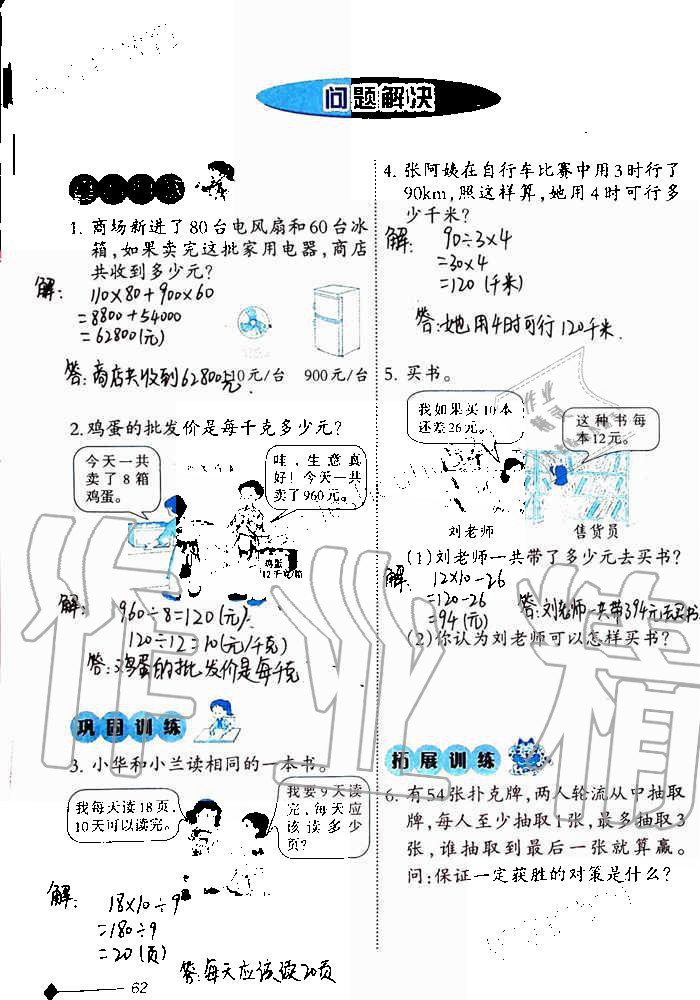 问题解决
1. 商场新进了80台电风扇和60台冰
箱,如果卖完这批家用电器,商店
共收到多少元?
解:
110×80+900×60
=8800+54000
=62800(元)
答:商店共收到62800元.
110元/台
900元/台
2. 鸡蛋的批发价是每千克多少元?
今天一共
卖了8箱
鸡蛋。
哇,生意真
好!今天一共
卖了960元。
鸡蛋
12千克/箱
解:
960÷8=120(元)
120÷12=10(元/千克)
答:鸡蛋的批发价是每千克
巩固训练
3. 小华和小兰读相同的一本书。
我每天读18页,
10天可以读完。
我要9天读
完,每天应
该读多少
页?
解:
18×10÷9
=180÷9
=20(页)
答:每天应该读20页
62
4. 张阿姨在自行车比赛中用3时行了
90km,照这样算,她用4时可行多
少千米?
解:
90÷3×4
=30×4
=120(千米)
答:她用4时可行120千米.
5. 买书。
我如果买10本
还差26元。
这种书每
本12元。
刘老师
售货员
(1)刘老师一共带了多少元去买书?
解:
12×10-26
=120-26
=94(元)
答:刘老师一共带94元去买书
(2)你认为刘老师可以怎样买书?
拓展训练
6. 有54张扑克牌,两人轮流从中抽取
牌,每人至少抽取1张,最多抽取3
张,谁抽取到最后一张就算赢。
问:保证一定获胜的对策是什么?
作业精